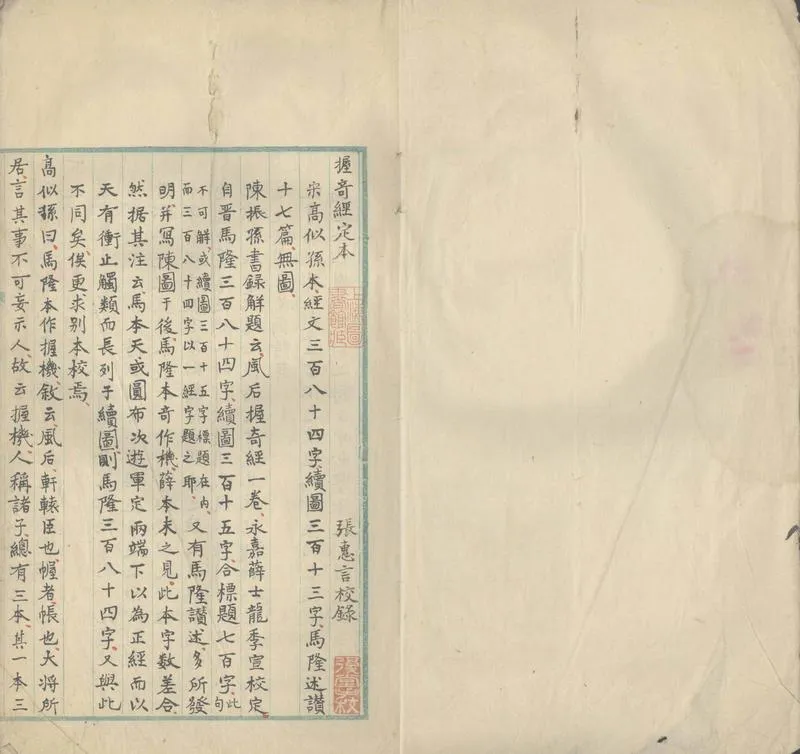 握奇經定本
張惠言校錄
宋高似孫本、經文三百八十四字、續圖三百十三字、馬隆述讚
十七篇、無圖、
陳振孫書錄解題云、風后握奇經一卷、永嘉薛士龍季宣校定
自晉馬隆三百八十四字、續圖三百十五字、合標題七百字、此句
不可解、或續圖三百十五字標題在內、
而三百八十四字以一經字題之耶、
又有馬隆讚述、多所發
明、并寫陳圖于後、馬隆本奇作機、薛本未之見、此本字數差合、
然据其注云、馬本天或圓布次遊軍定兩端下以為正經而以
天有衝止觸類而長列于續圖、則馬隆三百八十四字、又與此
不同矣、俟更求別本校焉、
高似孫曰、馬隆本作握機、敘云、風后、軒轅臣也、幄者、帳也、大將所
居、言其事不可妄示人、故云握機、人稱諸子、總有三本、其一本三